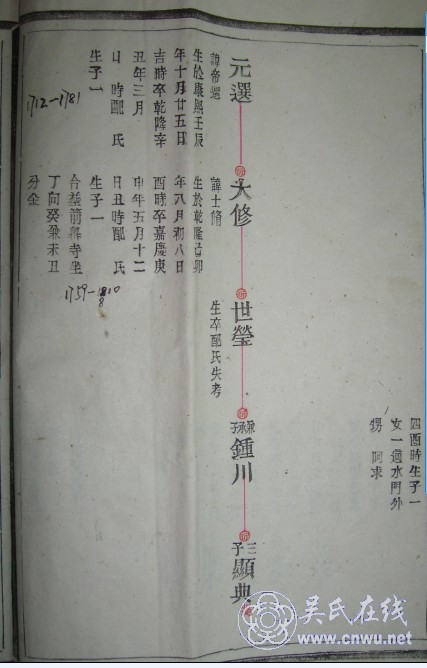 四酉時生子一
女一適水門外
甥 阿求
元選
諱帝選
生於康熙壬辰
年十月廿五日
吉時卒乾隆辛
丑年三月
日 時配 氏
生子一
1712-1781
大修
諱士脩
生於乾隆己卯
年八月初八日
酉時卒嘉慶庚
申年五月十二
日丑時配 氏
生子一
合葬前興寺坐
丁向癸兼未丑
分金
1759-1810
世瑩
生卒配氏失考
兼承子
鍾川
三子
顯典
吴氏在线
www.cnwu.net